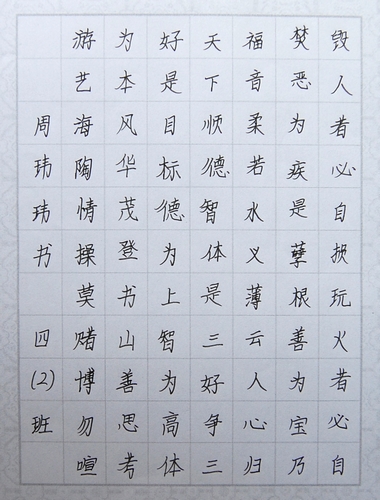 毁人者必自损玩火者必自
焚恶为疾是孽根善为宝乃
福音柔若水义薄云人心归
天下顺德智体是三好争三
好是目标德为上智为高体
为本风华茂登书山善思考
游艺海陶情操莫赌博勿喧
周玮玮书 四(2)班